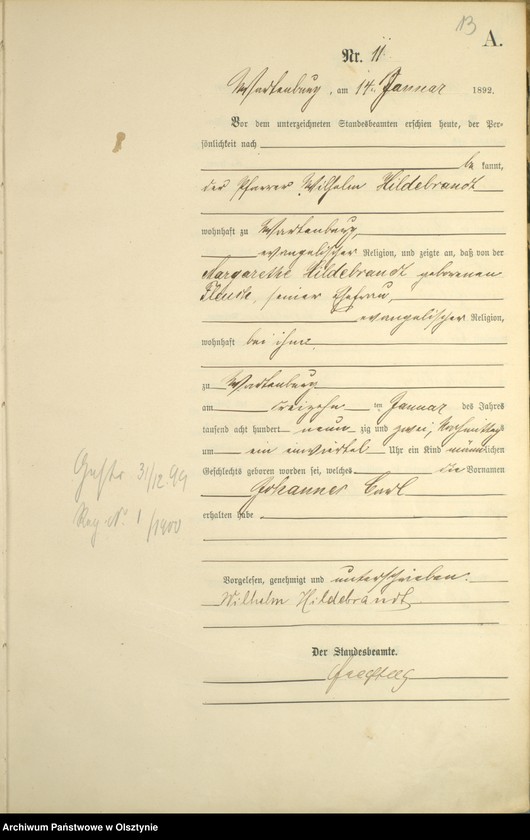 13
A.
Nr. 11
Wartenburg, am 14ten Januar 1892.
Vor dem unterzeichneten Standesbeamten erschien heute, der Per-
sönlichkeit nach
be kannt,
der Pfarrer Wilhelm Hildebrandt
wohnhaft zu Wartenburg,
evangelischer Religion, und zeigte an, daß von der
Margarethe Hildebrandt geborenen
seiner Ehefrau,
evangelischer Religion,
wohnhaft bei ihm
zu Wartenburg
am dreizehn ten Januar des Jahres
tausend acht hundert neun zig und zwei, Nachmittags
um ein einviertel Uhr ein Kind männlichen
Geschlechts geboren worden sei, welches die Vornamen
Johannes Carl
erhalten habe
Vorgelesen, genehmigt und unterschrieben.
Wilhelm Hildebrandt
Der Standesbeamte.
31/12 99
Reg. No. 1/1900
Archiwum Państwowe w Olsztynie